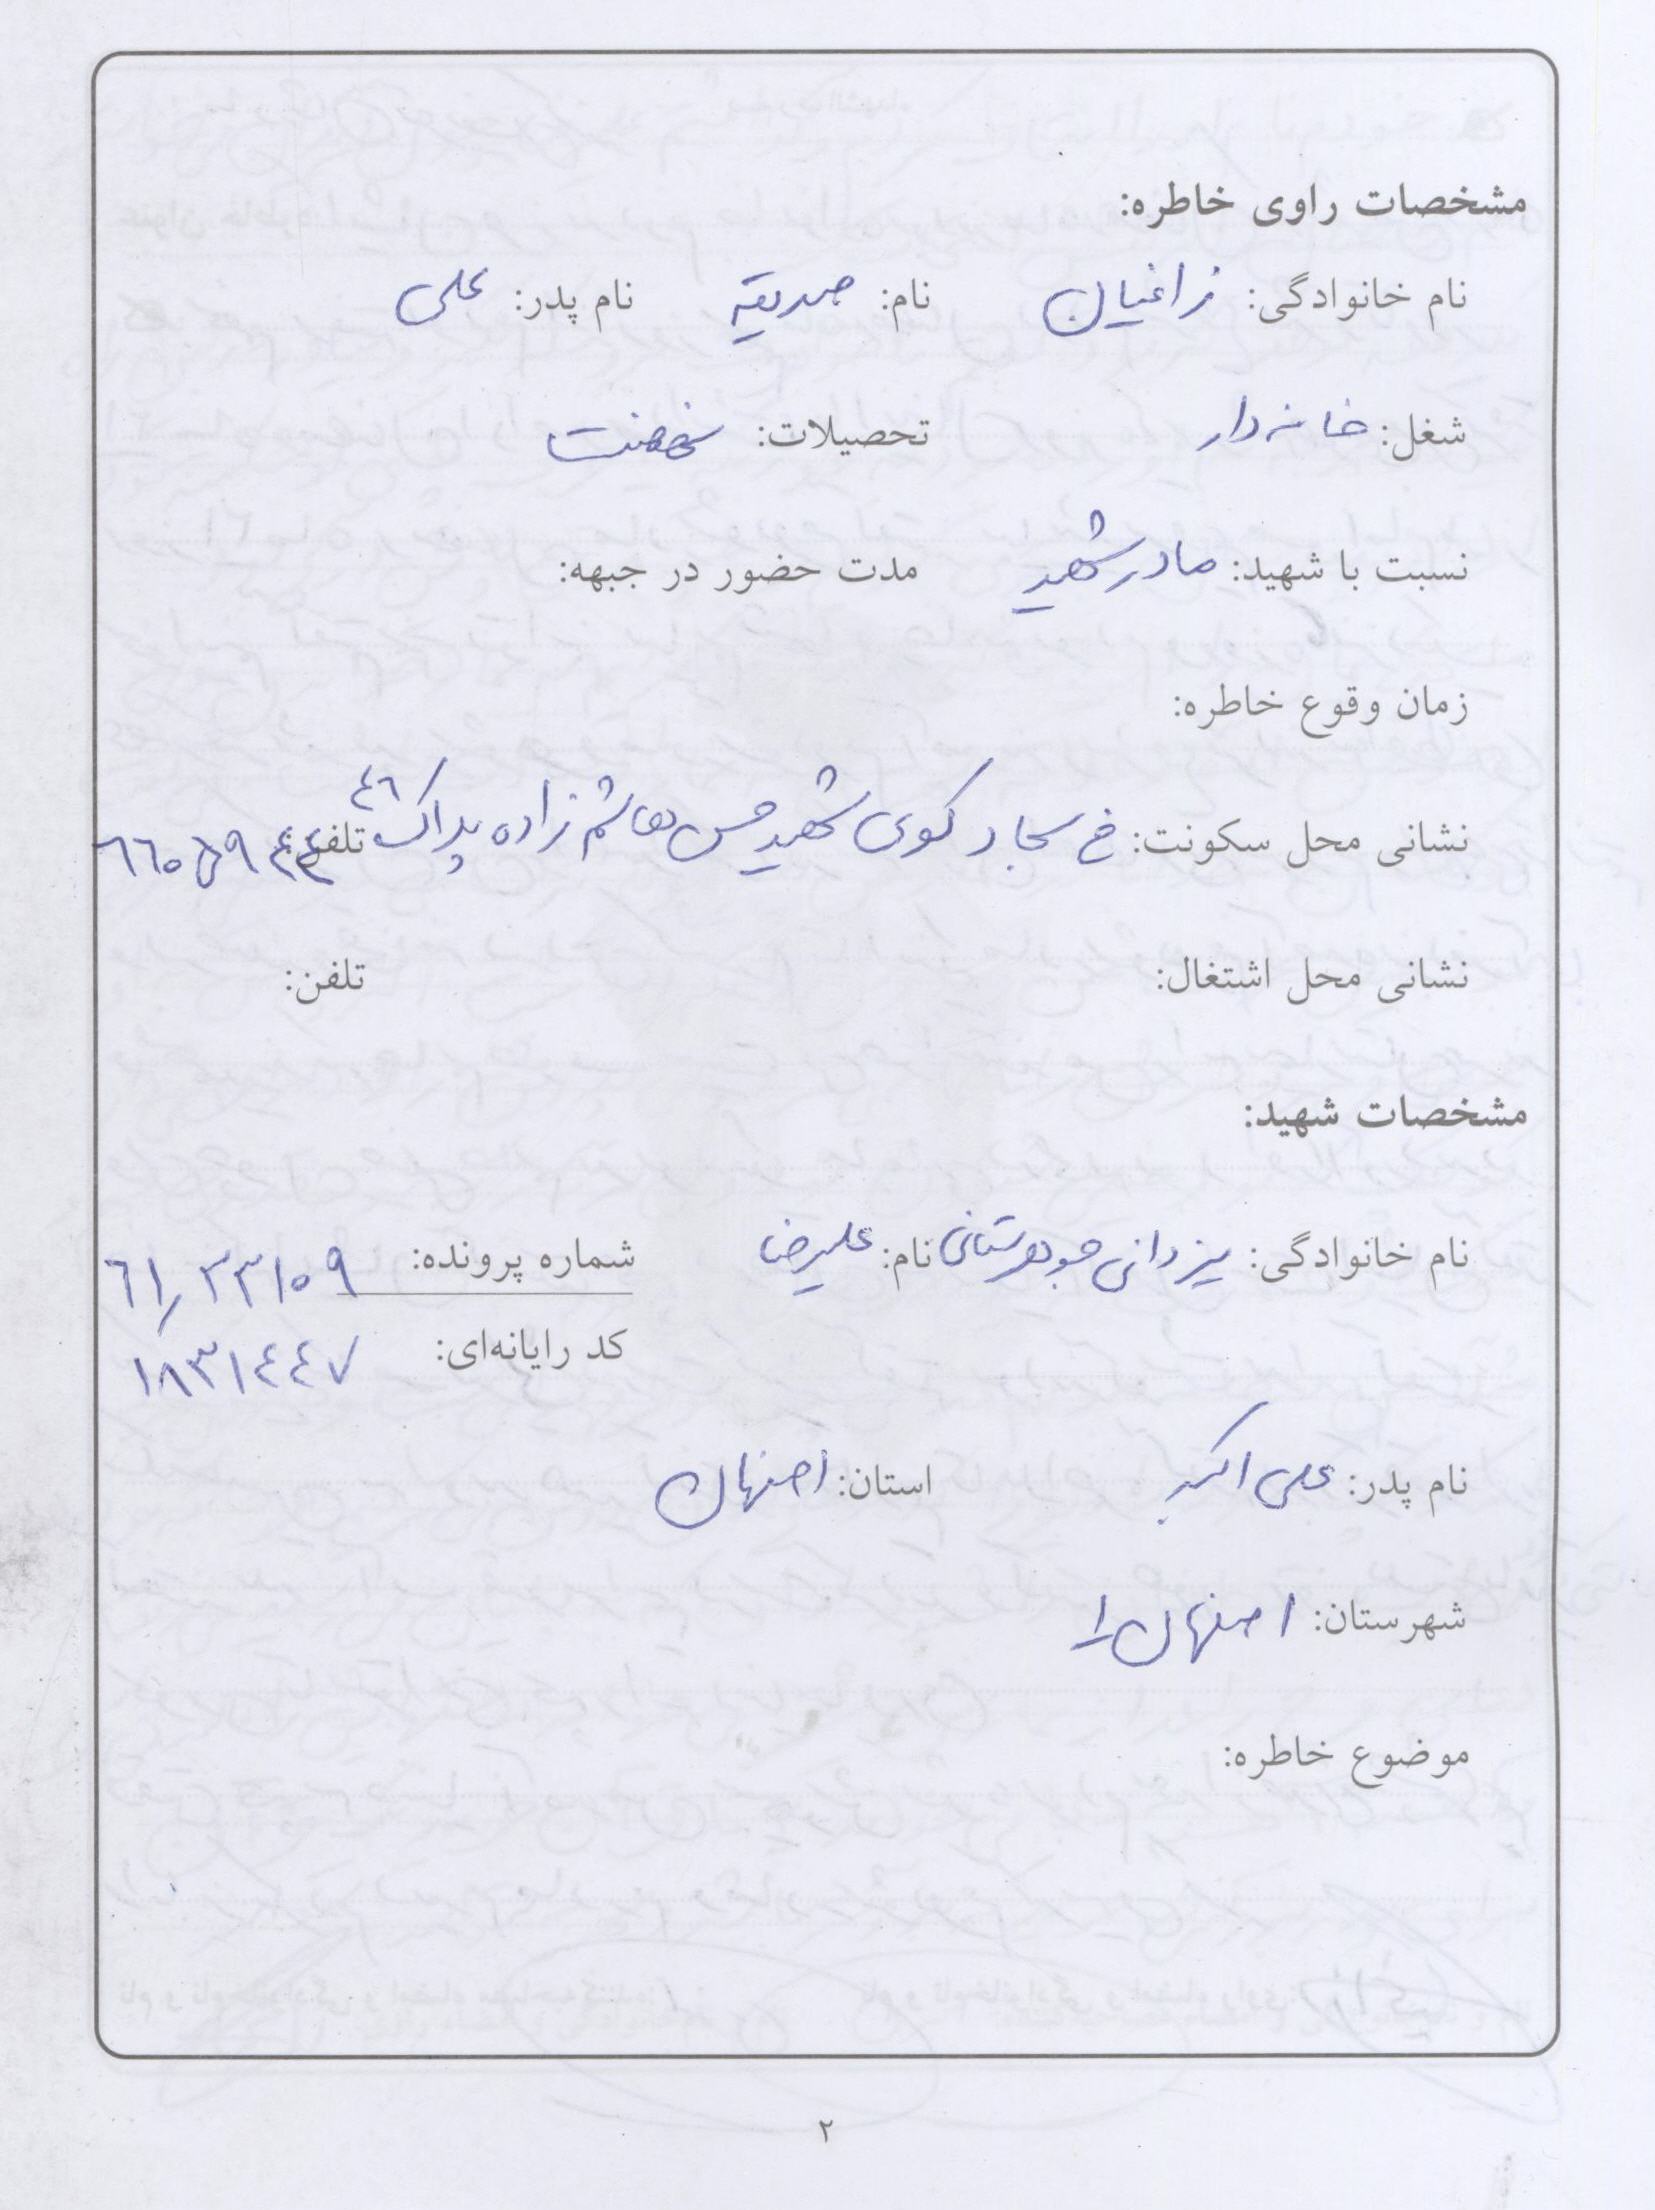 مشخصات راوی خاطره:
نام خانوادگی: زاغیان نام: صدیقه نام پدر: علی
شغل: خانه دار تحصیلات: نهضت
نسبت با شهید: مادر شهید مدت حضور در جبهه:
زمان وقوع خاطره:
نشانی محل سکونت: خ سجاد کوی شهید حسن هاشم زاده پلاک ٤٦ تلفن:
نشانی محل اشتغال: تلفن:
مشخصات شهید:
نام خانوادگی: یزدانی جوهرستانی نام: علیرضا شماره پرونده: ٦١,٢٣١٥٩
کد رایانه‌ای: ١٨٣١٤٤٧
نام پدر: علی اکبر استان: اصفهان
شهرستان: اصفهان ١
موضوع خاطره:
٢